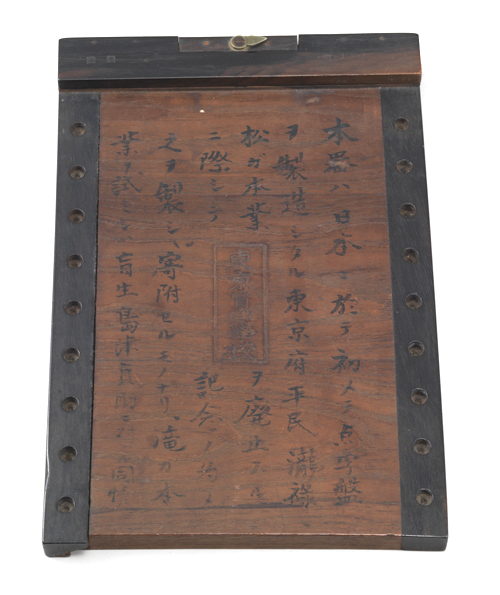 本器ハ日本ニ於テ初メテ点字盤
ヲ製造シタル東京府平民瀧禄
松ガ本業ヲ廃止スル
ニ際シテ記念ノ為メ
之ヲ製シ、寄附セルモノナリ、滝ガ本
業ヲ試ミシハ盲生島津